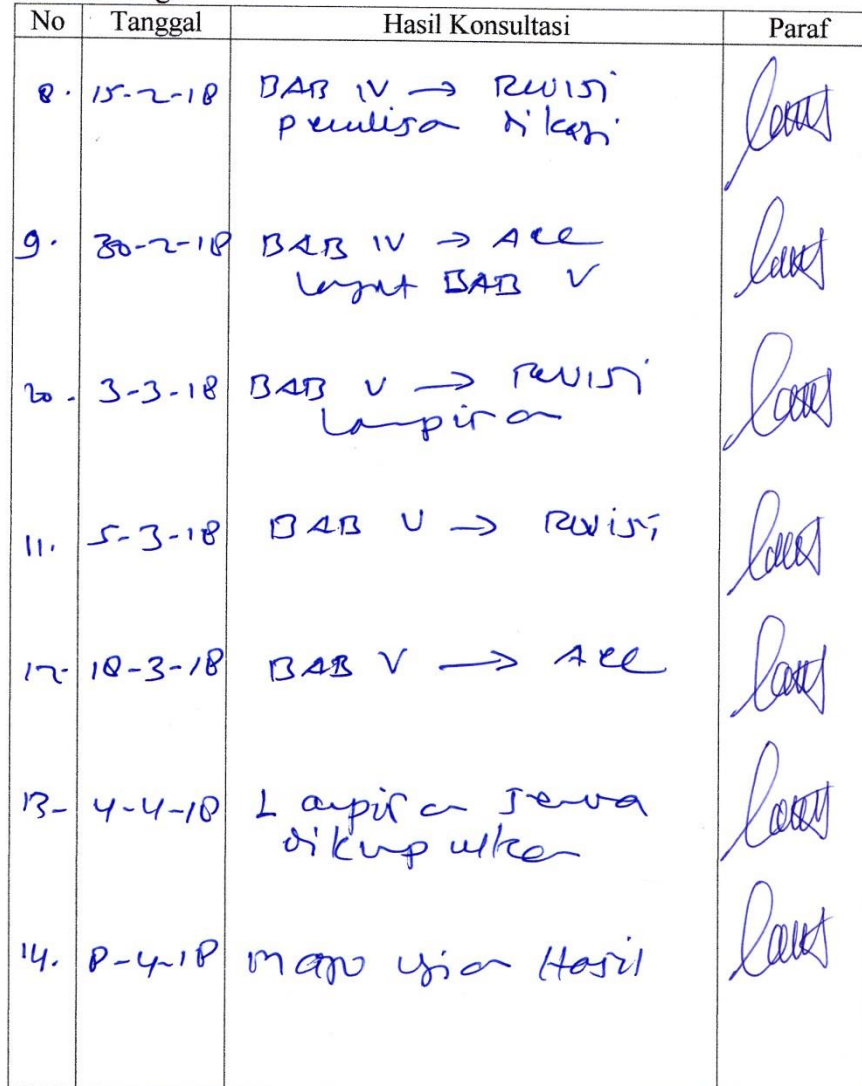 No Tanggal Hasil Konsultasi Paraf
8. 15-2-18 BAB IV → Revisi
penulisa di kaji
9. 30-2-18 BAB IV → Acc
lanjut BAB V
20. 3-3-18 BAB V → Revisi
Lampiran
11. 5-3-18 BAB V → Revisi
12. 18-3-18 BAB V → Acc
13- 4-4-18 Lampiran semua
dikumpulkan
14. 8-4-18 maju ujian Hasil